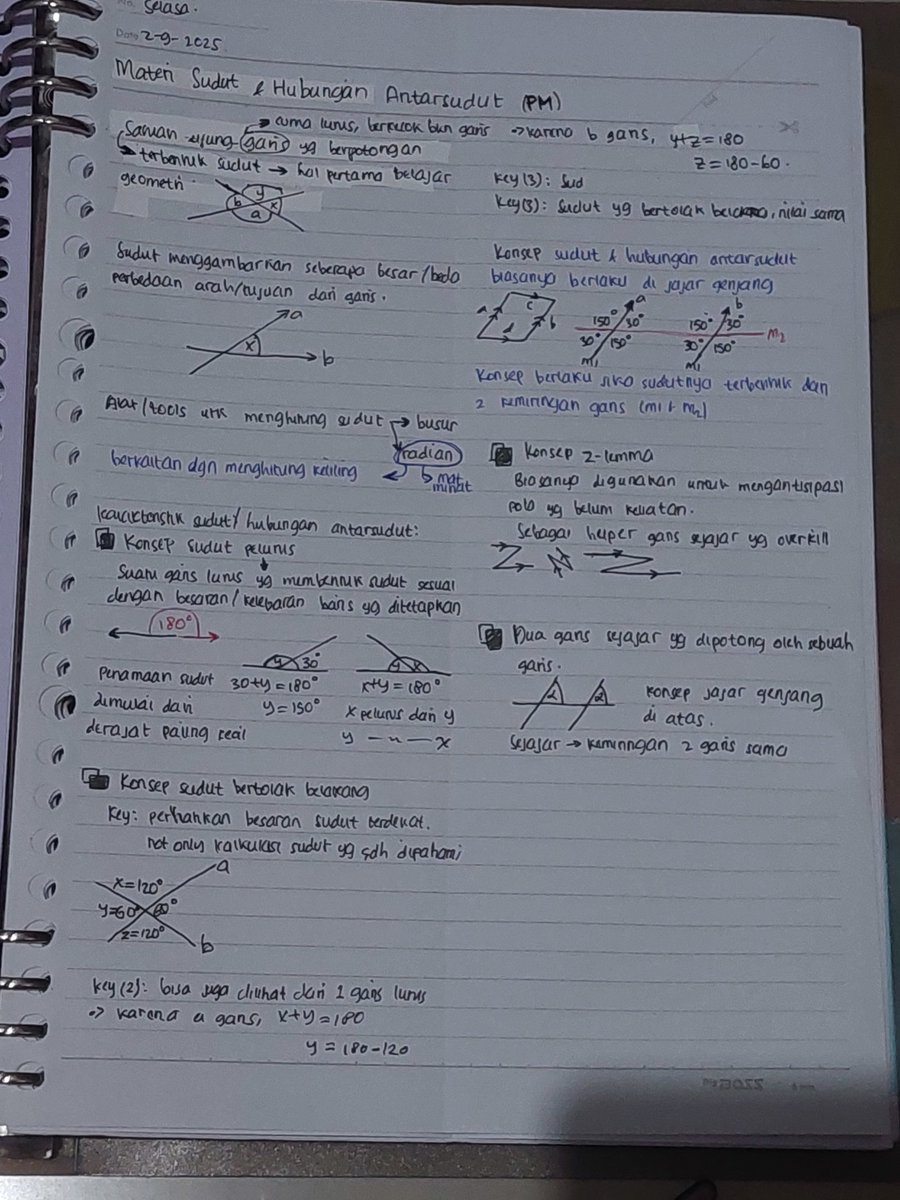 Selasa.
Date 2-9-2025
Materi Sudut & Hubungan Antarsudut (PM)
cuma lurus,
garis yg berpotongan
terbentuk sudut → hal pertama belajar
geometri.
y
b x
a
Sudut menggambarkan seberapa besar/beda
perbedaan arah/tujuan dari garis.
a
x
b
Alat/tools utk menghitung sudut → busur
radian
berkaitan dgn menghitung keliling
mat
minat
sudut/hubungan antarsudut:
Konsep sudut pelurus
Suatu garis lurus yg membentuk sudut sesuai
dengan besaran/kelebaran baris yg ditetapkan
180°
y 30°
30+y=180°
y=150°
y x
x+y=180°
x pelurus dari y
y -"- x
Penamaan sudut
dimulai dari
derajat paling kecil
Konsep sudut bertolak belakang
Key: perhatikan besaran sudut berdekat.
not only kalkulasi sudut yg sdh dipahami
a
x=120°
y=60° 60°
z=120°
b
Key(2): bisa juga dilihat dari 1 garis lurus
⇒ karena a garis, x+y=180
y=180-120
⇒ karena b garis, y+z=180
z=180-60.
Key(3): Sud
Key(3): Sudut yg bertolak, nilai sama
Konsep sudut & hubungan antarsudut
biasanya berlaku di jajar genjang
c
b
c a
150° 30°
30° 150°
m1
b
150° 30° m2
30° 150°
m1
Konsep berlaku jika sudutnya terbentuk dari
2 kemiringan garis (m1 & m2)
Konsep Z-lemma
Biasanya digunakan untuk mengantisipasi
pola yg belum keliatan.
Sebagai helper garis sejajar yg overkill
Dua garis sejajar yg dipotong oleh sebuah
garis.
konsep jajar genjang
di atas.
Sejajar → kemiringan 2 garis sama